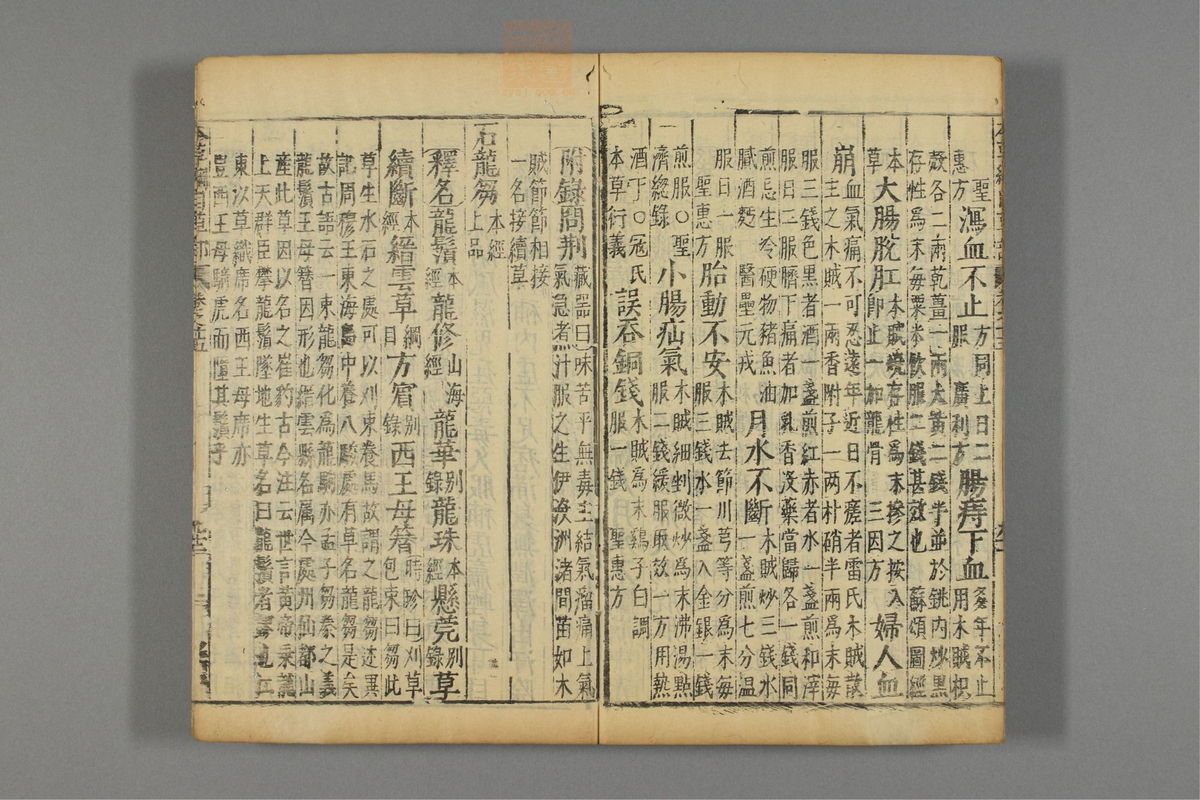 聖惠方瀉血不止方同上日二服 廣利方腸痔下血多年不止用木賊枳
殼各二兩乾薑一兩大黃二錢半並於銚內炒黑存性爲末每粟米飲服二錢甚效也 蘇頌圖經
本草大腸脫肛木賊燒存性爲末摻之按入即止一加龍骨 三因方婦人血
崩血氣痛不可忍遠年近日不瘥者雷氏木賊散主之木賊一兩香附子一兩朴硝半兩爲末每
服三錢色黑者酒一盞煎紅赤者水一盞煎和滓服日二服臍下痛者加乳香沒藥當歸各一錢同
煎忌生冷硬物豬魚油膩酒麪 醫壘元戎月水不斷木賊炒三錢水一盞煎七分溫
服日一服 聖惠方胎動不安木賊去節川芎等分爲末每服三錢水一盞入金銀一錢
煎服○聖濟總錄小腸疝氣木賊細剉微炒爲末沸湯點服二錢緩服取效一方用熱
酒下○寇氏本草衍義誤吞銅錢木賊爲末雞子白調服一錢 聖惠方
附錄問荆藏器曰味苦平無毒主結氣瘤痛上氣氣急煮汁服之生伊洛洲渚間苗如木
賊節節相接一名接續草
石龍芻本經上品
釋名龍鬚本經龍修山海經龍華別錄龍珠本經懸莞別錄草
續斷本經縉雲草綱目方賓別錄西王母簪時珍曰刈草包束曰芻此
草生水石之處可以刈束養馬故謂之龍芻述異記周穆王東海島中養八駿處有草名龍芻是矣
故古語云一束龍芻化爲龍駒亦孟子芻豢之義龍鬚王母簪因形也縉雲縣名屬今處州仙都山
產此草因以名之崔豹古今注云世言黃帝乘龍上天群臣攀龍鬚墜地生草名曰龍鬚者謬也江
東以草織席名西王母席亦豈西王母騎虎而墮其鬚乎